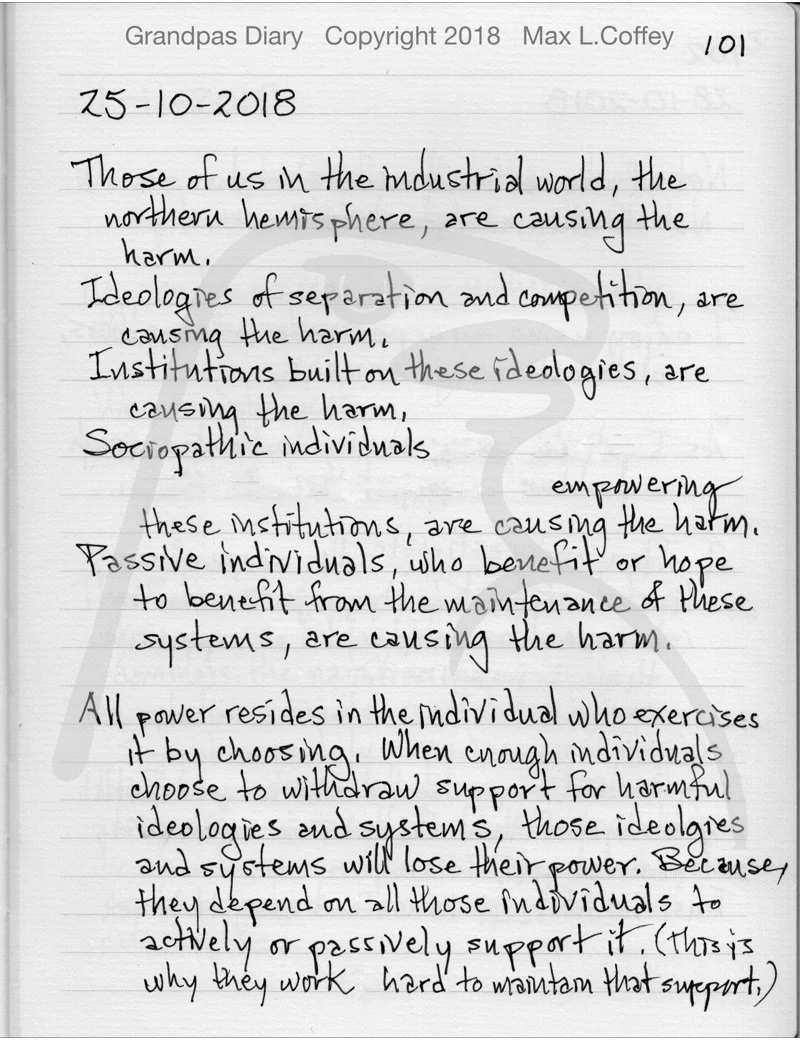 Grandpas Diary Copyright 2018 Max L.Coffey
101
25-10-2018
Those of us in the industrial world, the
northern hemisphere, are causing the
harm.
Ideologies of separation and competition, are
causing the harm.
Institutions built on these ideologies, are
causing the harm.
Sociopathic individuals
empowering
these institutions, are causing the harm.
Passive individuals, who benefit or hope
to benefit from the maintenance of these
systems, are causing the harm.
All power resides in the individual who exercises
it by choosing. When enough individuals
choose to withdraw support for harmful
ideologies and systems, those ideolgies
and systems will lose their power. Because,
they depend on all those individuals to
actively or passively support it. (This is
why they work hard to maintain that support.)